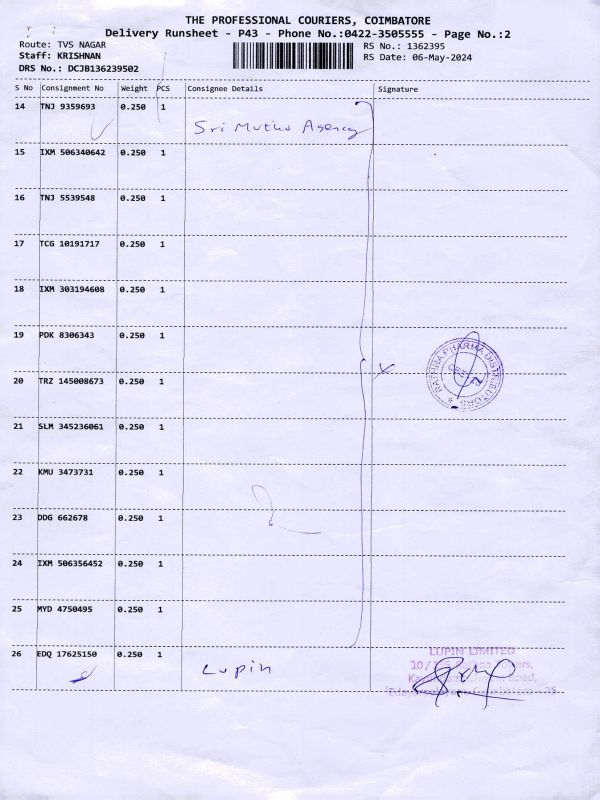 THE PROFESSIONAL COURIERS, COIMBATORE
Delivery Runsheet - P43 - Phone No.:0422-3505555 - Page No.:2
Route: TVS NAGAR
RS No.: 1362395
Staff: KRISHNAN
RS Date: 06-May-2024
DRS No.: DCJB136239502
S No Consignment No Weight PCS Consignee Details Signature
14 TNJ 9359693 0.250 1
Sri Muthu Agency
15 IXM 506340642 0.250 1
16 TNJ 5539548 0.250 1
17 TCG 10191717 0.250 1
18 IXM 303194608 0.250 1
19 PDK 8306343 0.250 1
RATHNA PHARMA DISTRIBUTORS
20 TRZ 145008673 0.250 1
21 SLM 345236061 0.250 1
22 KMU 3473731 0.250 1
23 DDG 662678 0.250 1
24 IXM 506356452 0.250 1
25 MYD 4750495 0.250 1
26 EDQ 17625150 0.250 1
Lupin
LUPIN LIMITED